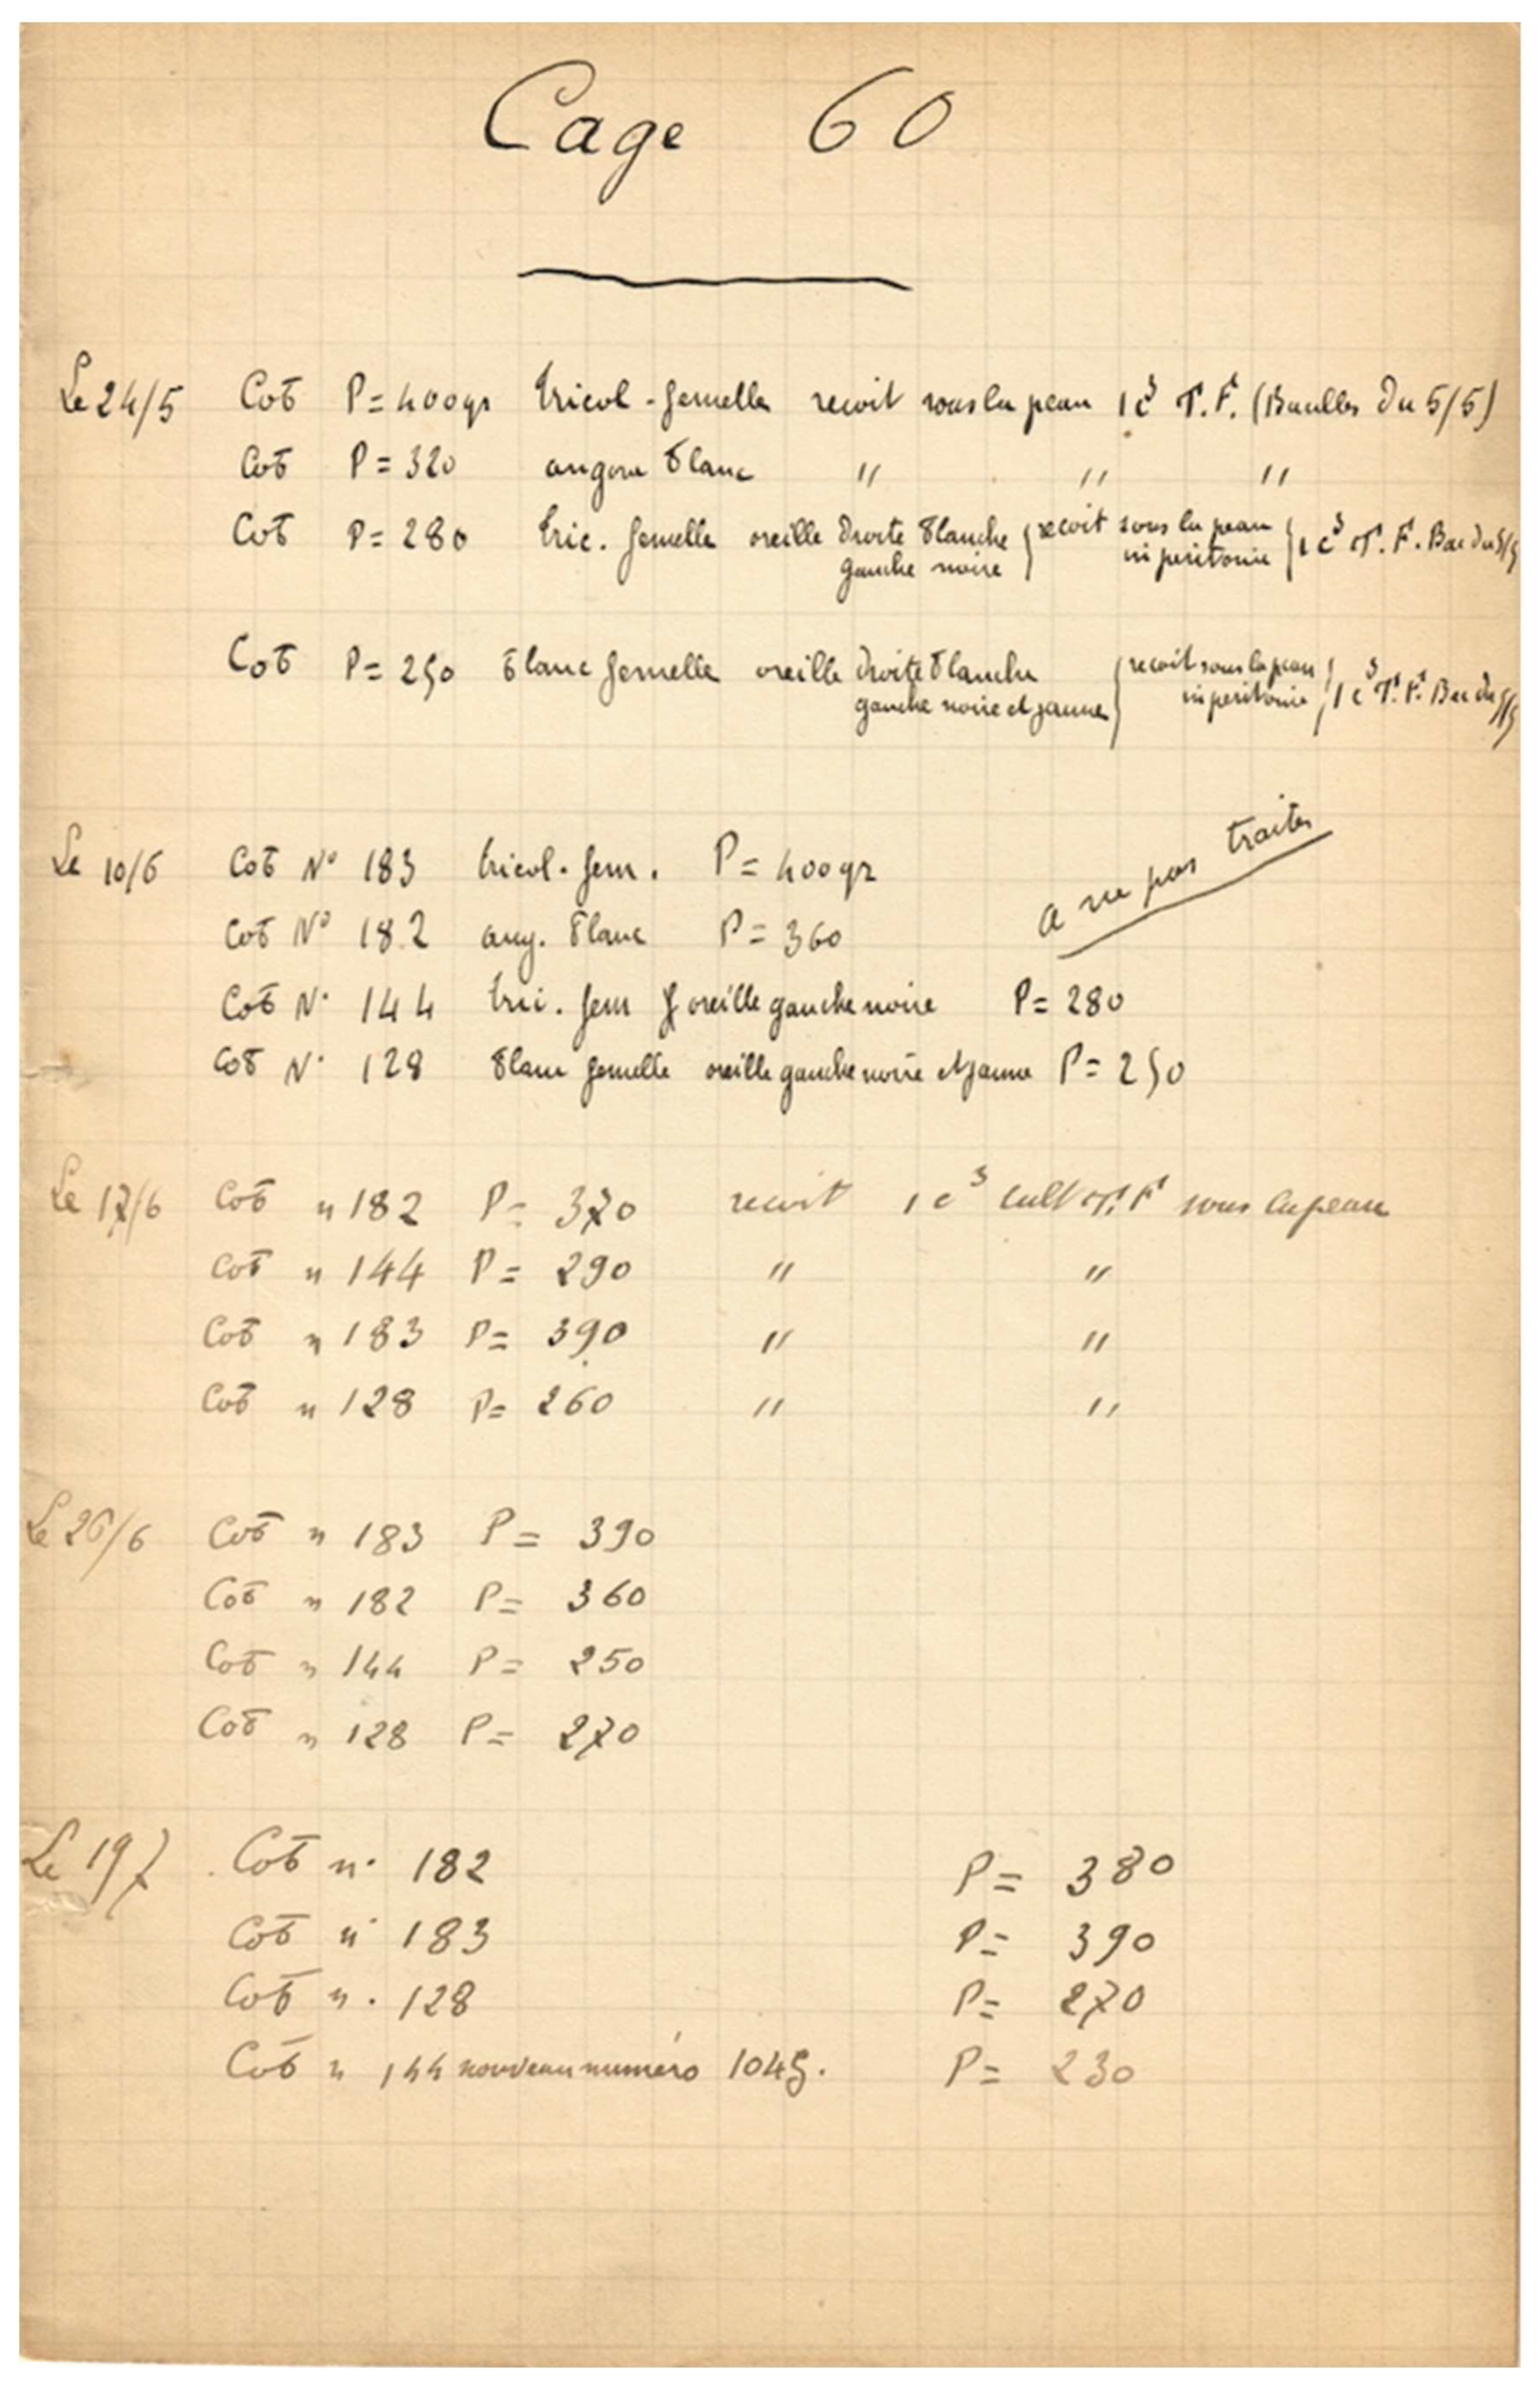 Cage 60
Le 24/5 Cob P = 400gr tricol - femelle recoit sous la peau 1 c³ T.F. (Bacilles du 5/5)
Cob P = 320 angora blanc " " "
Cob P = 280 tric. femelle oreille droite blanche recoit sous la peau 1 c³ T.F. Bac du 5/5
gauche noire ni peritonie
Cob P = 250 blanc femelle oreille droite blanche recoit sous la peau 1 c³ T.F. Bac du 5/5
gauche noire et jaune ni peritonie
a ne pas traiter
Le 10/6 Cob N° 183 tricol. fem. P = 400gr
Cob N° 182 ang. blanc P = 360
Cob N° 144 tri. fem oreille gauche noire P = 280
Cob N° 128 blanc femelle oreille gauche noire et jaune P = 250
Le 17/6 Cob n 182 P = 370 recoit 1 c³ cult T.F sous la peau
Cob n 144 P = 290 " "
Cob n 183 P = 390 " "
Cob n 128 P = 260 " "
Le 26/6 Cob n 183 P = 390
Cob n 182 P = 360
Cob n 144 P = 250
Cob n 128 P = 270
Le 19 7 Cob n° 182 P = 380
Cob n° 183 P = 390
Cob n. 128 P = 270
Cob n 144 nouveau numéro 1045. P = 230